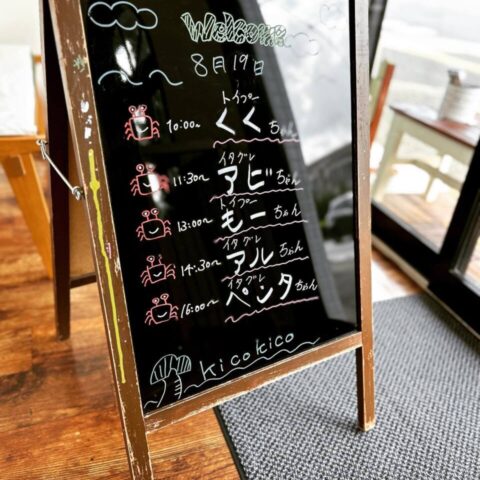 Welcome
8月19日
トイプー
10:00~ くくちゃん
イタグレ
11:30~ アビちゃん
トイプー
13:00~ もーちゃん
イタグレ
14:30~ アルちゃん
イタグレ
16:00~ ペンタちゃん
kicokico